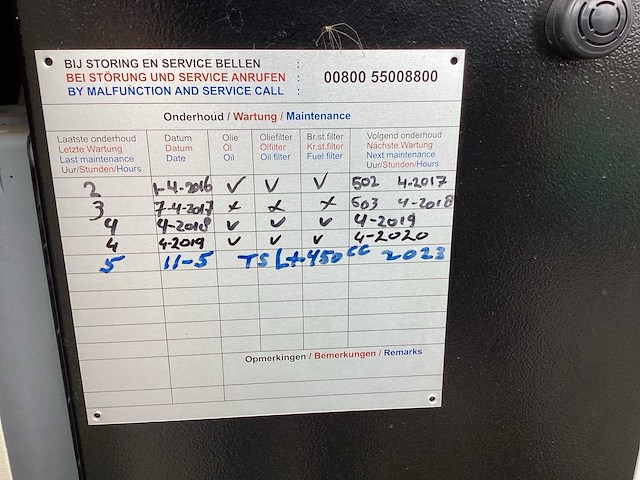 BIJ STORING EN SERVICE BELLEN :
BEI STÖRUNG UND SERVICE ANRUFEN : 00800 55008800
BY MALFUNCTION AND SERVICE CALL :
Onderhoud / Wartung / Maintenance
Laatste onderhoud Datum Olie Oliefilter Br.st.filter Volgend onderhoud
Letzte Wartung Datum Öl Ölfilter Kr.st.filter Nächste Wartung
Last maintenance Date Oil Oil filter Fuel filter Next maintenance
Uur/Stunden/Hours Uur/Stunden/Hours
2 1-4-2016 ✓ ✓ ✓ 502 4-2017
3 7-4-2017 x x x 503 4-2018
4 4-2018 ✓ ✓ ✓ 4-2019
4 4-2019 ✓ ✓ ✓ 4-2020
5 11-5 450cc 2023
Opmerkingen / Bemerkungen / Remarks